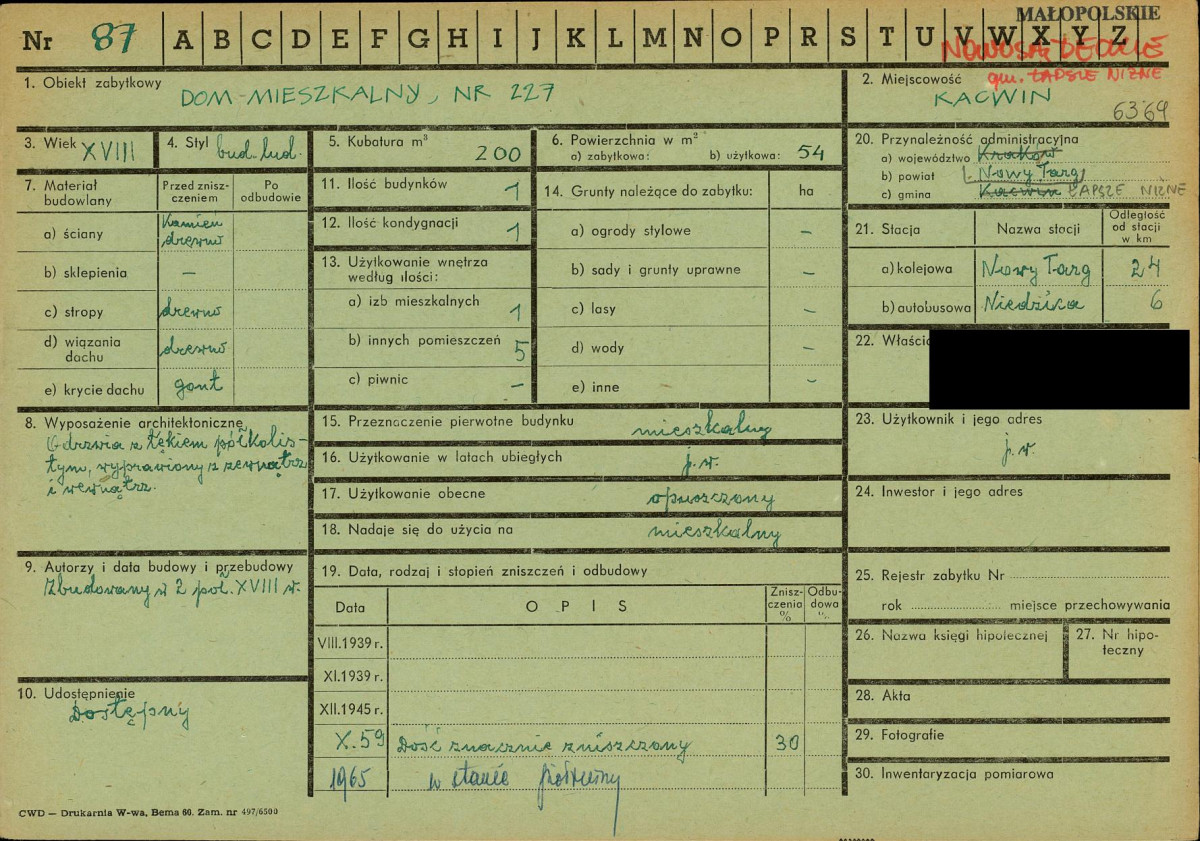 MAŁOPOLSKIE
Nr 87 A B C D E F G H I J K L M N O P R S T U V W X Y Z
NOWOSĄDECKIE
gm. ŁAPSZE NIŻNE
1. Obiekt zabytkowy
DOM MIESZKALNY, NR 227
2. Miejscowość
KACWIN
6369
3. Wiek XVIII
4. Styl bud. lud.
5. Kubatura m³
200
6. Powierzchnia w m²
a) zabytkowa: b) użytkowa: 54
20. Przynależność administracyjna
a) województwo Kraków
b) powiat Nowy Targ
c) gmina Kacwin ŁAPSZE NIŻNE
7. Materiał budowlany
Przed znisz-
czeniem
Po
odbudowie
a) ściany kamień
drewno
b) sklepienia —
c) stropy drewno
d) wiązania
dachu drewno
e) krycie dachu gont
11. Ilość budynków 1
12. Ilość kondygnacji 1
13. Użytkowanie wnętrza
według ilości:
a) izb mieszkalnych 1
b) innych pomieszczeń 5
c) piwnic —
14. Grunty należące do zabytku: ha
a) ogrody stylowe —
b) sady i grunty uprawne —
c) lasy —
d) wody —
e) inne -
21. Stacja Nazwa stacji
Odległość
od stacji
w km
a) kolejowa Nowy Targ 24
b) autobusowa Niedzica 6
22. Właści
8. Wyposażenie architektoniczne
Odrzwia z łękiem półkolis-
tym, wyprawiony z zewnątrz
i wewnątrz.
15. Przeznaczenie pierwotne budynku mieszkalny
16. Użytkowanie w latach ubiegłych j. w.
17. Użytkowanie obecne opuszczony
18. Nadaje się do użycia na mieszkalny
23. Użytkownik i jego adres
j. w.
24. Inwestor i jego adres
9. Autorzy i data budowy i przebudowy
Zbudowany w 2 poł. XVIII w.
19. Data, rodzaj i stopień zniszczeń i odbudowy
Data OPIS
Znisz-
czenia
%
Odbu-
dowa
%
VIII.1939 r.
XI.1939 r.
XII.1945 r.
X.59 Dość znacznie zniszczony 30
1965 w stanie
25. Rejestr zabytku Nr
rok miejsce przechowywania
26. Nazwa księgi hipotecznej
27. Nr hipo-
teczny
10. Udostępnienie
Dostępny
28. Akta
29. Fotografie
30. Inwentaryzacja pomiarowa
CWD — Drukarnia W-wa, Bema 60. Zam. nr 497/6500